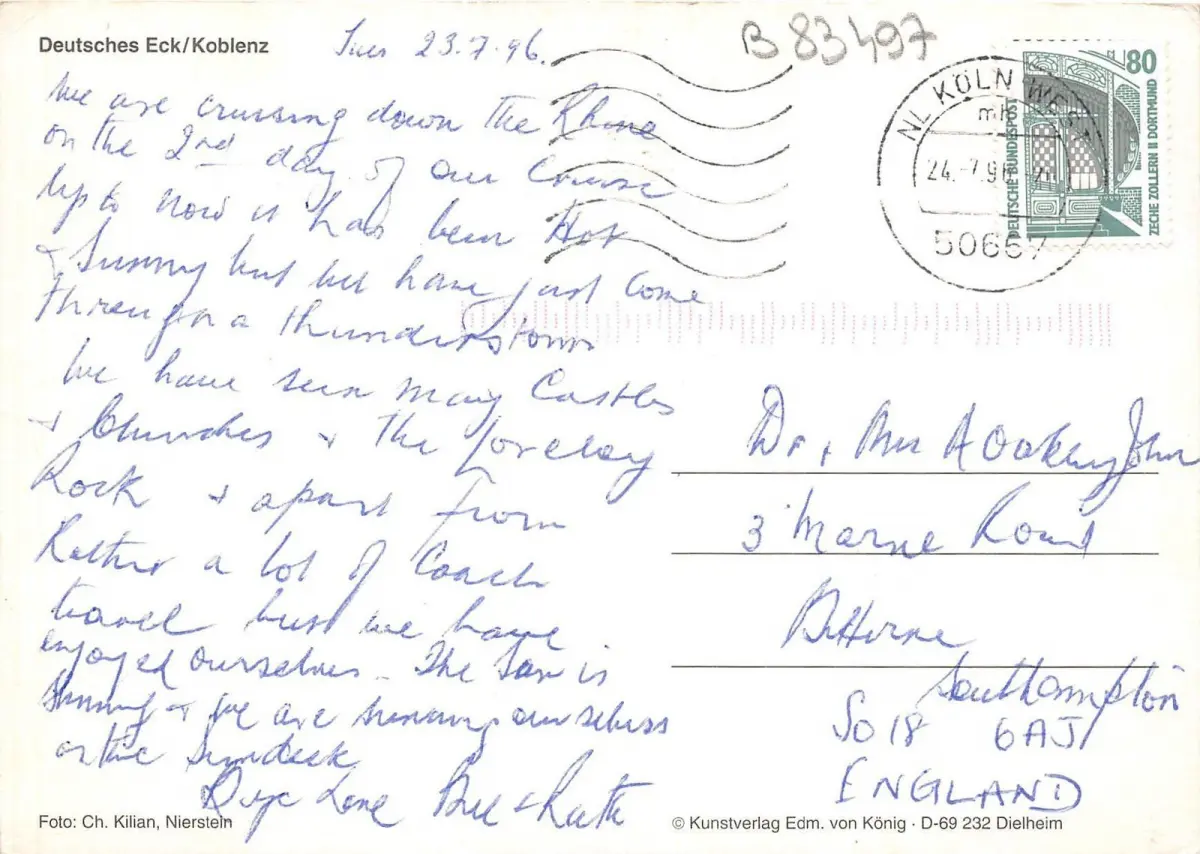 Deutsches Eck/Koblenz
Tues 23.7.96.
B 83497
We are cruising down the Rhine
on the 2nd day of our Cruise
Up to now it has been Hot
& Sunny but we have just come
through a thunderstorm
We have seen many Castles
+ Churches + the Loreley
Rock + apart from
Rather a lot of Coach
travel but we have
enjoyed ourselves. The Sun is
Shining + We are sunning ourselves
on the Sundeck
Love Bill & Ruth
80
DEUTSCHE BUNDESPOST
ZECHE ZOLLERN II DORTMUND
NL KÖLN WEST
mb
24.-7.96
50667
Dr + Mrs A Oakley John
3 Marne Road
Bitterne
Southampton
SO18 6AJ
ENGLAND
Foto: Ch. Kilian, Nierstein
© Kunstverlag Edm. von König · D-69 232 Dielheim